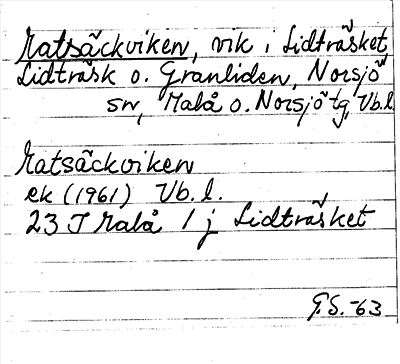 Matsäckviken, vik i Lidträsket,
Lidträsk o. Granliden, Norsjö
sn, Malå o. Norsjö tg, Vb.l.
Matsäckviken
ek (1961) Vb.l.
23 J Malå 1 j Lidträsket
G.S.-63